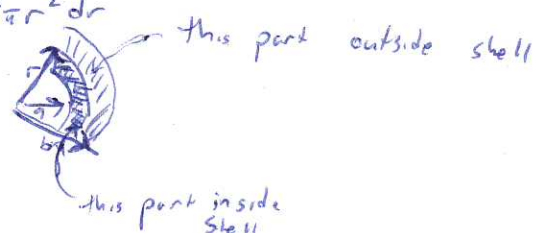 πr² dr
this part outside shell
r
a
b
this part inside
Shell